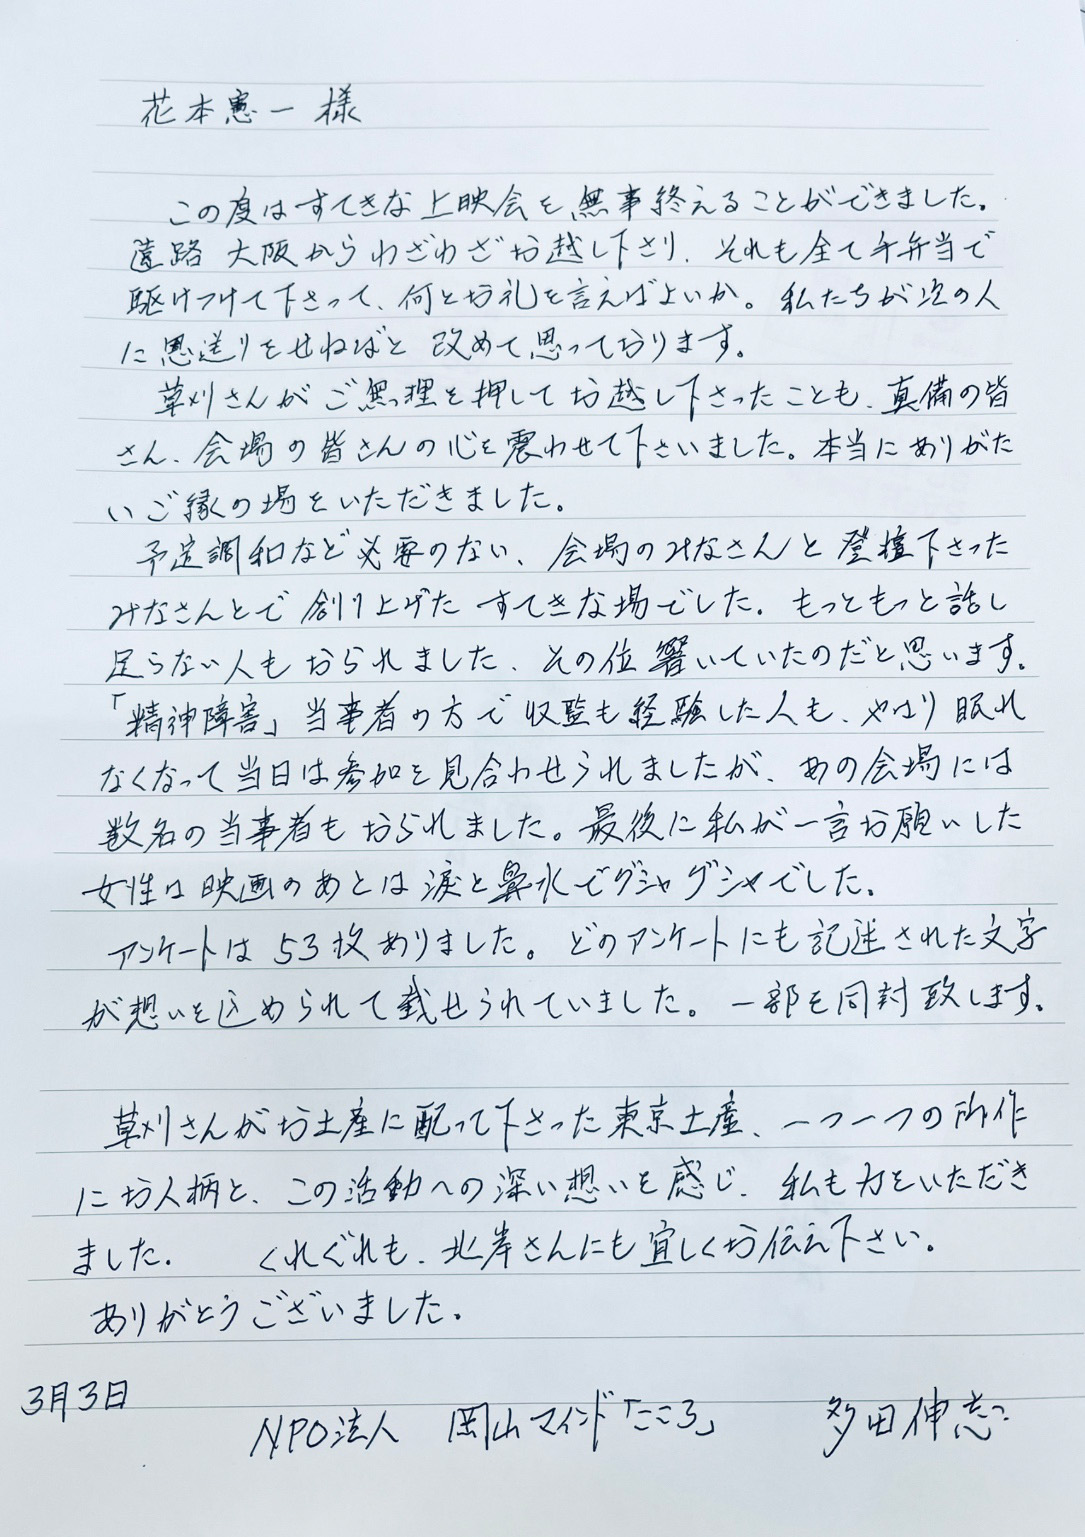 花本憲一様
この度はすてきな上映会を無事終えることができました。
遠路 大阪からわざわざお越し下さり、それも全て手弁当で
駆けつけて下さって、何とお礼を言えばよいか。私たちが次の人
に恩送りをせねばと 改めて思っております。
草刈さんがご無理を押してお越し下さったことも、真備の皆
さん、会場の皆さんの心を震わせて下さいました。本当にありがた
いご縁の場をいただきました。
予定調和など必要のない、会場のみなさんと登壇下さった
みなさんとで創り上げた すてきな場でした。もっともっと話し
足らない人もおられました、その位響いていたのだと思います。
「精神障害」当事者の方で収監も経験した人も、やはり眠れ
なくなって当日は参加を見合わせられましたが、あの会場には
数名の当事者もおられました。最後に私が一言お願いした
女性は映画のあとは涙と鼻水でグシャグシャでした。
アンケートは53枚ありました。どのアンケートにも記述された文字
が想いを込められて載せられていました。一部を同封致します。
草刈さんがお土産に配って下さった東京土産、一つ一つの所作
にお人柄と、この活動への深い想いを感じ、私も力をいただき
ました。 くれぐれも、北岸さんにも宜しくお伝え下さい。
ありがとうございました。
3月3日
NPO法人 岡山マインド「こころ」 多田伸志